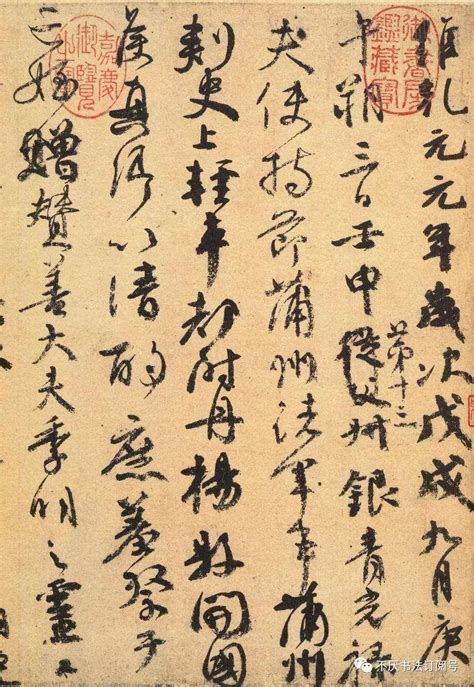 維乾元元年歲次戊戌九月庚
午朔三日壬申從父第十三叔銀青光祿
夫使持節蒲州諸軍事蒲州
刺史上輕車都尉丹楊縣開國
侯真卿以清酌庶羞祭于
亡姪贈贊善大夫季明之靈曰
御書房鑑藏寶
嘉慶御覽之寶
不厌书法订阅号